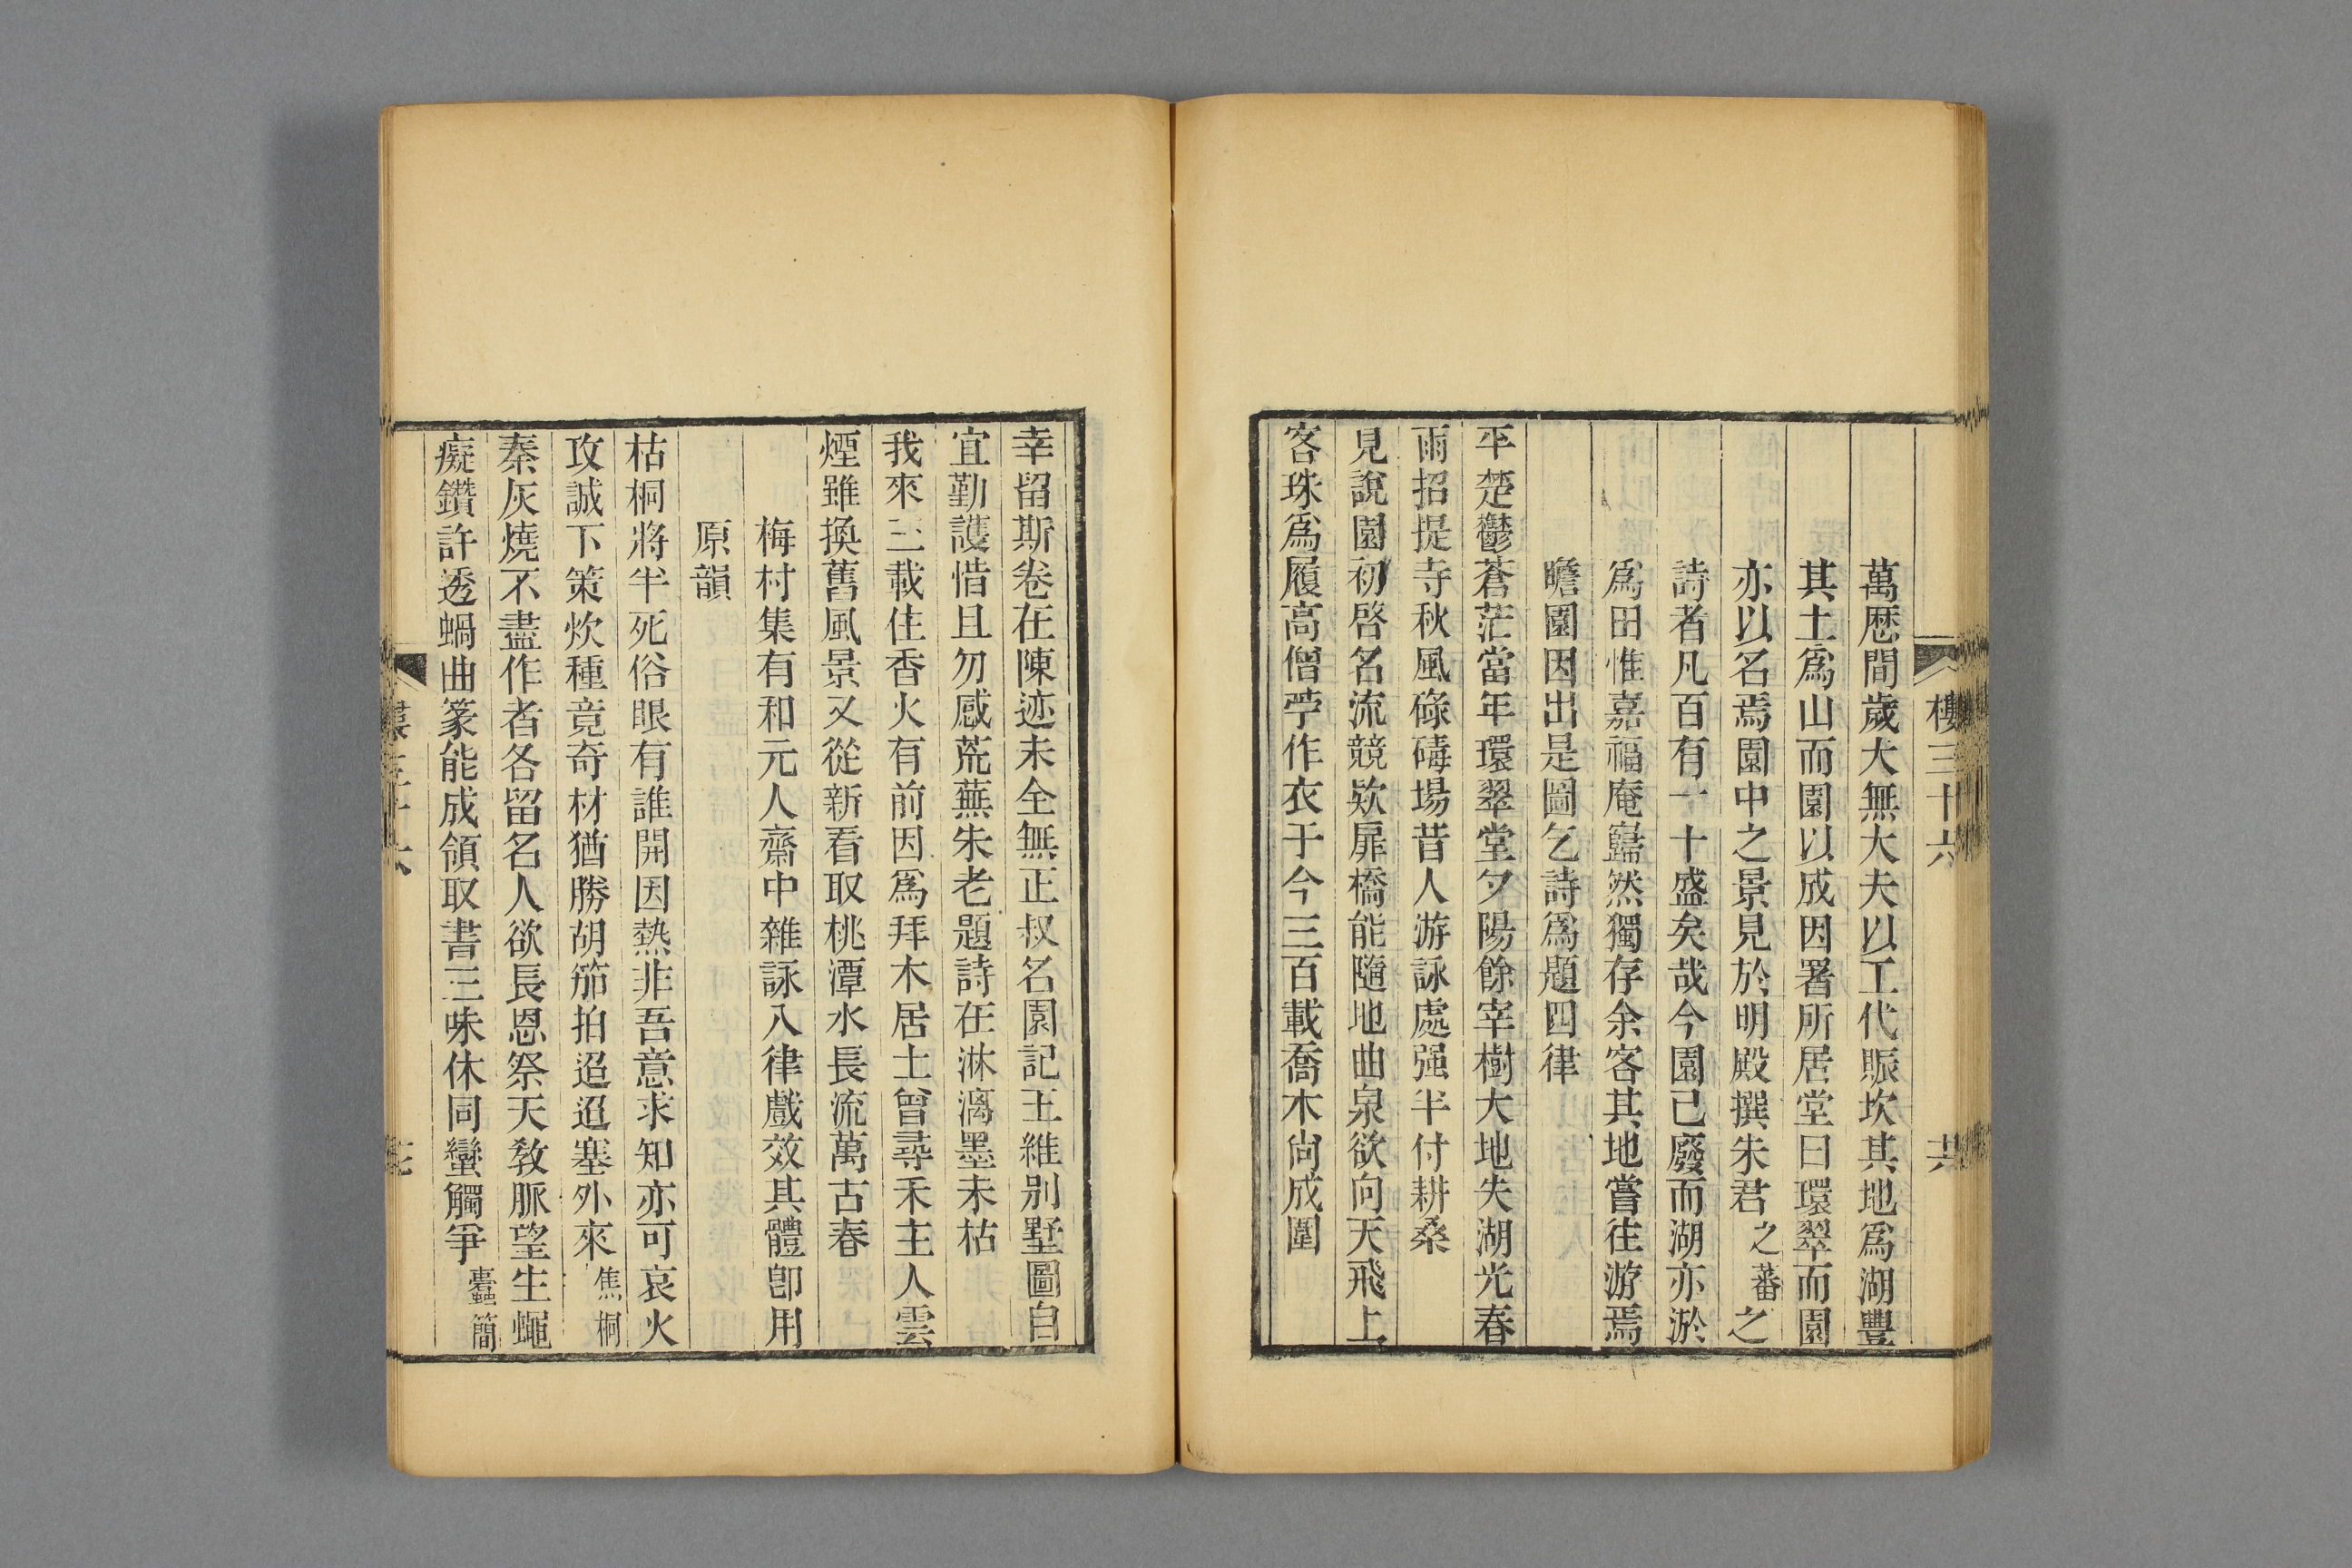 樓三十六
共
萬厯間歲大無大夫以工代賑坎其地爲湖豐
其土爲山而園以成因署所居堂曰環翠而園
亦以名焉園中之景見於明殿撰朱君之蕃之
詩者凡百有一十盛矣哉今園已廢而湖亦淤
爲田惟嘉福庵巋然獨存余客其地嘗往游焉
瞻園因出是圖乞詩爲題四律
平楚鬱蒼茫當年環翠堂夕陽餘宰樹大地失湖光春
雨招提寺秋風碌碡場昔人游詠處强半付耕桑
見說園初啓名流競欵扉橋能隨地曲泉欲向天飛上
客珠爲履高僧苧作衣于今三百載喬木尙成圍
幸留斯卷在陳迹未全無正叔名園記王維别墅圖自
宜勤護惜且勿感荒蕪朱老題詩在淋漓墨未枯
我來三載住香火有前因爲拜木居士曾尋禾主人雲
煙雖換舊風景又從新看取桃潭水長流萬古春
梅村集有和元人齋中雜詠八律戲效其體卽用
原韻
枯桐將半死俗眼有誰開因熱非吾意求知亦可哀火
攻誠下策炊種竟奇材猶勝胡笳拍迢迢塞外來焦桐
秦灰燒不盡作者各留名人欲長恩祭天敎脈望生蠅
癡鑽許透蝸曲篆能成領取書三味休同蠻觸爭蠹簡